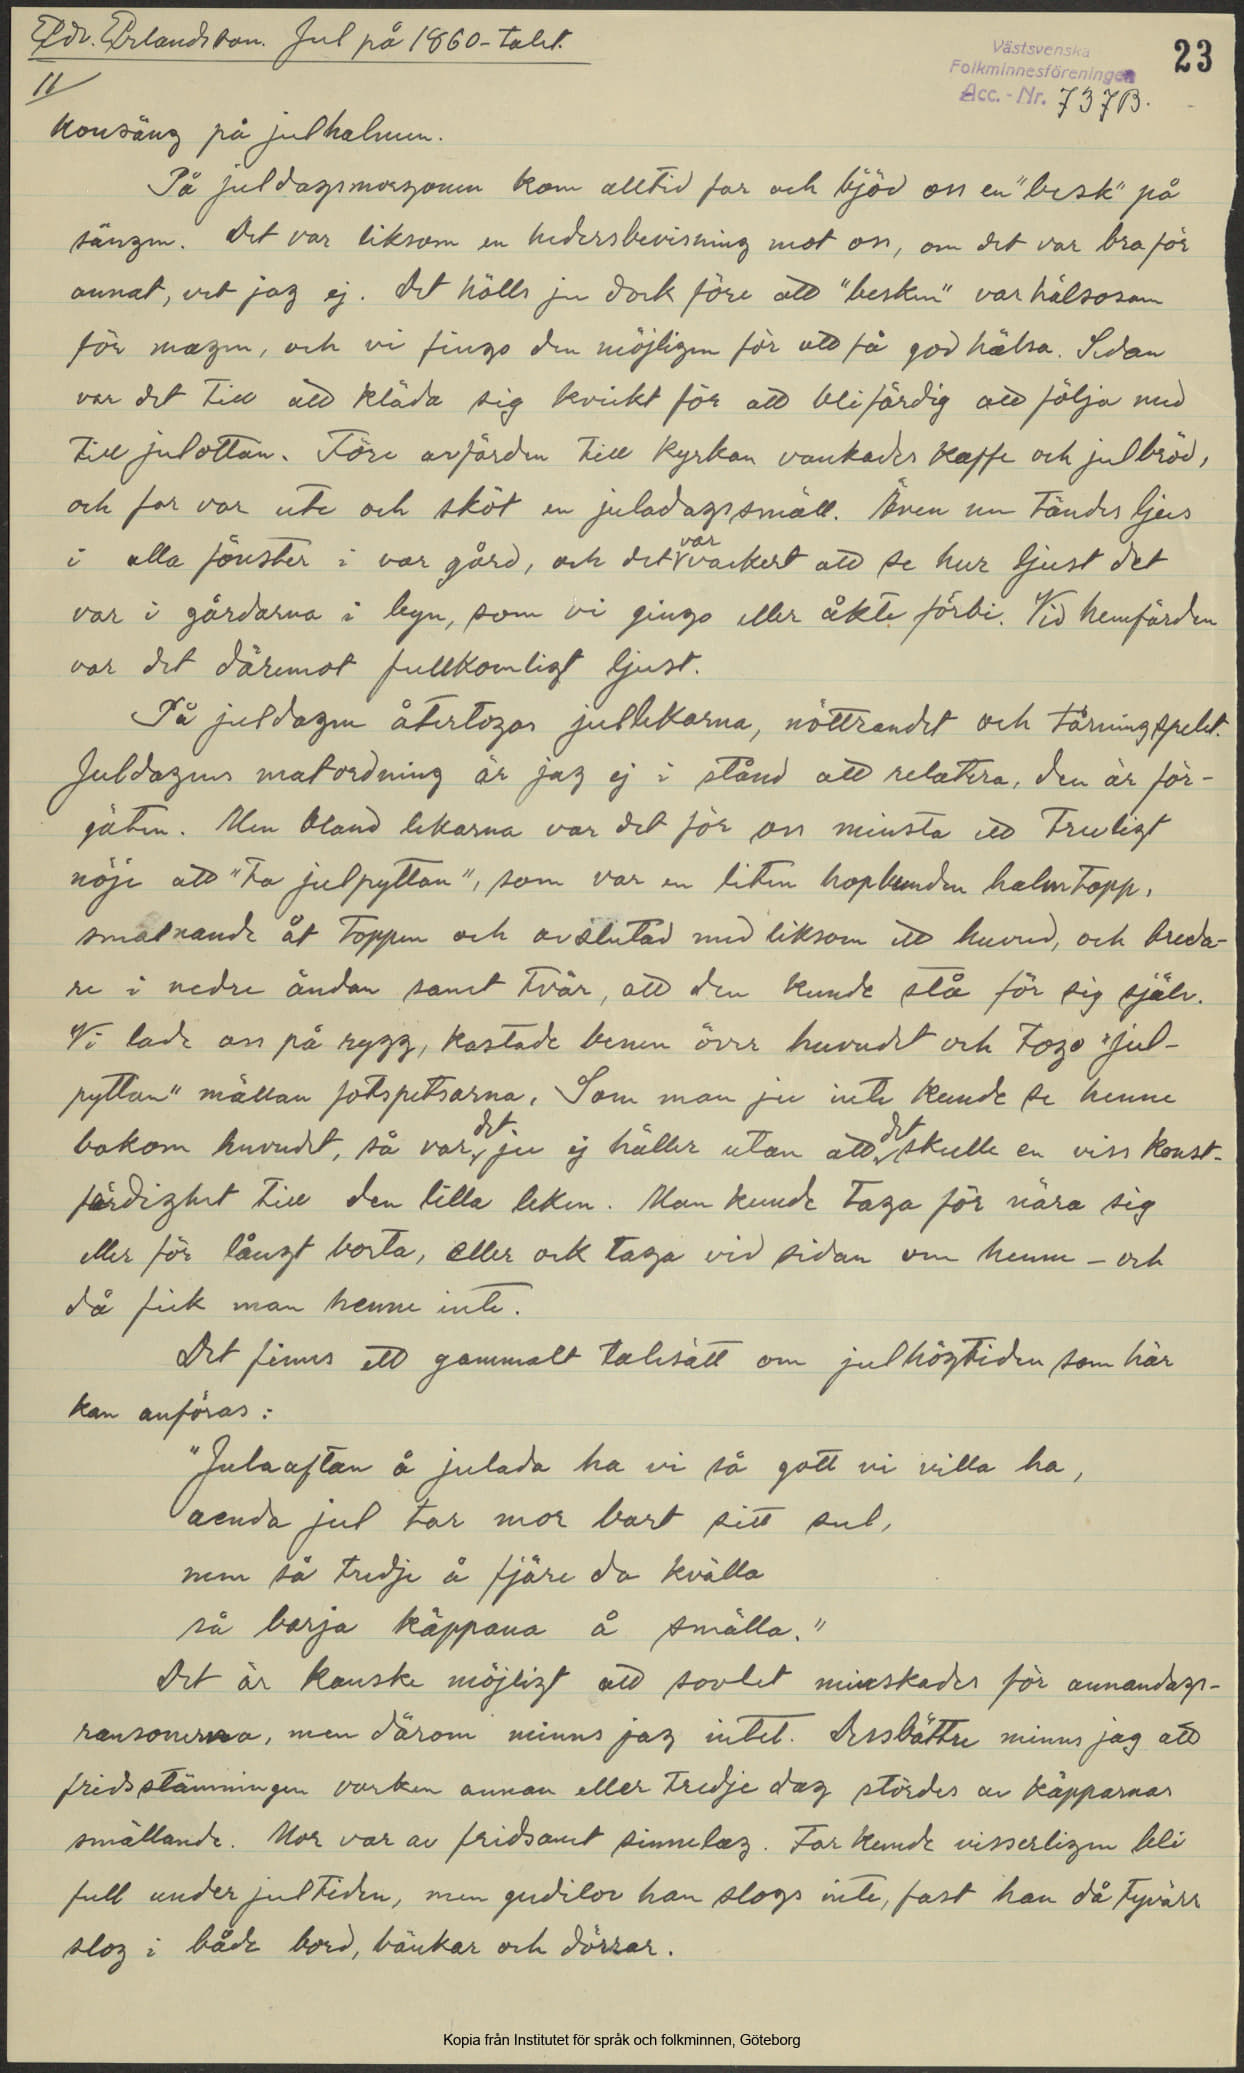 Edv. Erlandsson. Jul på 1860-talet.
Västsvenska
Folkminnesföreningen
Acc.-Nr. 737B.
23
11
konsäng på julhalmen.
På juldagsmorgonen kom alltid far och bjöd oss en "besk" på
sängen. Det var liksom en hedersbevisning mot oss, om det var bra för
annat, vet jag ej. Det hölls ju dock före att "besken" var hälsosam
för magen, och vi fingo den möjligen för att få god hälsa. Sedan
var det till att kläda sig kvickt för att bli färdig att följa med
till julottan. Före avfärden till kyrkan vankades kaffe och julbröd,
och far var ute och sköt en juladagssmäll. Även nu tändes ljus
i alla fönster i var gård, och det var vackert att se hur ljust det
var i gårdarna i byn, som vi gingo eller åkte förbi. Vid hemfärden
var det däremot fullkomligt ljust.
På juldagen återtogos jullekarna, nöttrandet och tärningspelet.
Juldagens matordning är jag ej i stånd att relatera, den är för-
gäten. Men bland lekarna var det för oss minsta ett trevligt
nöje att "ta julpyttan", som var en liten hopbunden halmtapp,
smalnande åt toppen och avslutad med liksom ett huvud, och breda-
re i nedre ändan samt tvär, att den kunde stå för sig själv.
Vi lade oss på rygg, kastade benen över huvudet och togo "jul-
pyttan" mällan fotspetsarna. Som man ju inte kunde se henne
bakom huvudet, så var det ju ej häller utan att det skulle en viss konst-
färdighet till den lilla leken. Man kunde taga för nära sig
eller för långt borta, eller ock taga vid sidan om henne – och
då fick man henne inte.
Det finns ett gammalt talesätt om julhögtiden som här
kan anföras:
"Julaaftan å julada ha vi så gott vi villa ha,
aenda jul tar mor bart sitt sul,
men så tredje å fjäre da kvälla
så barja käppana å smälla."
Det är kanske möjligt att sovlet minskades för annandags-
ransonerna, men därom minns jag intet. Dessbättre minns jag att
fridsstämningen varken annan eller tredje dag stördes av käpparnas
smällande. Mor var av fridsamt sinnelag. Far kunde visserligen bli
full under jultiden, men gudilov han slogs inte, fast han då tyvärr
slog i både bord, bänkar och dörrar.
Kopia från Institutet för språk och folkminnen, Göteborg